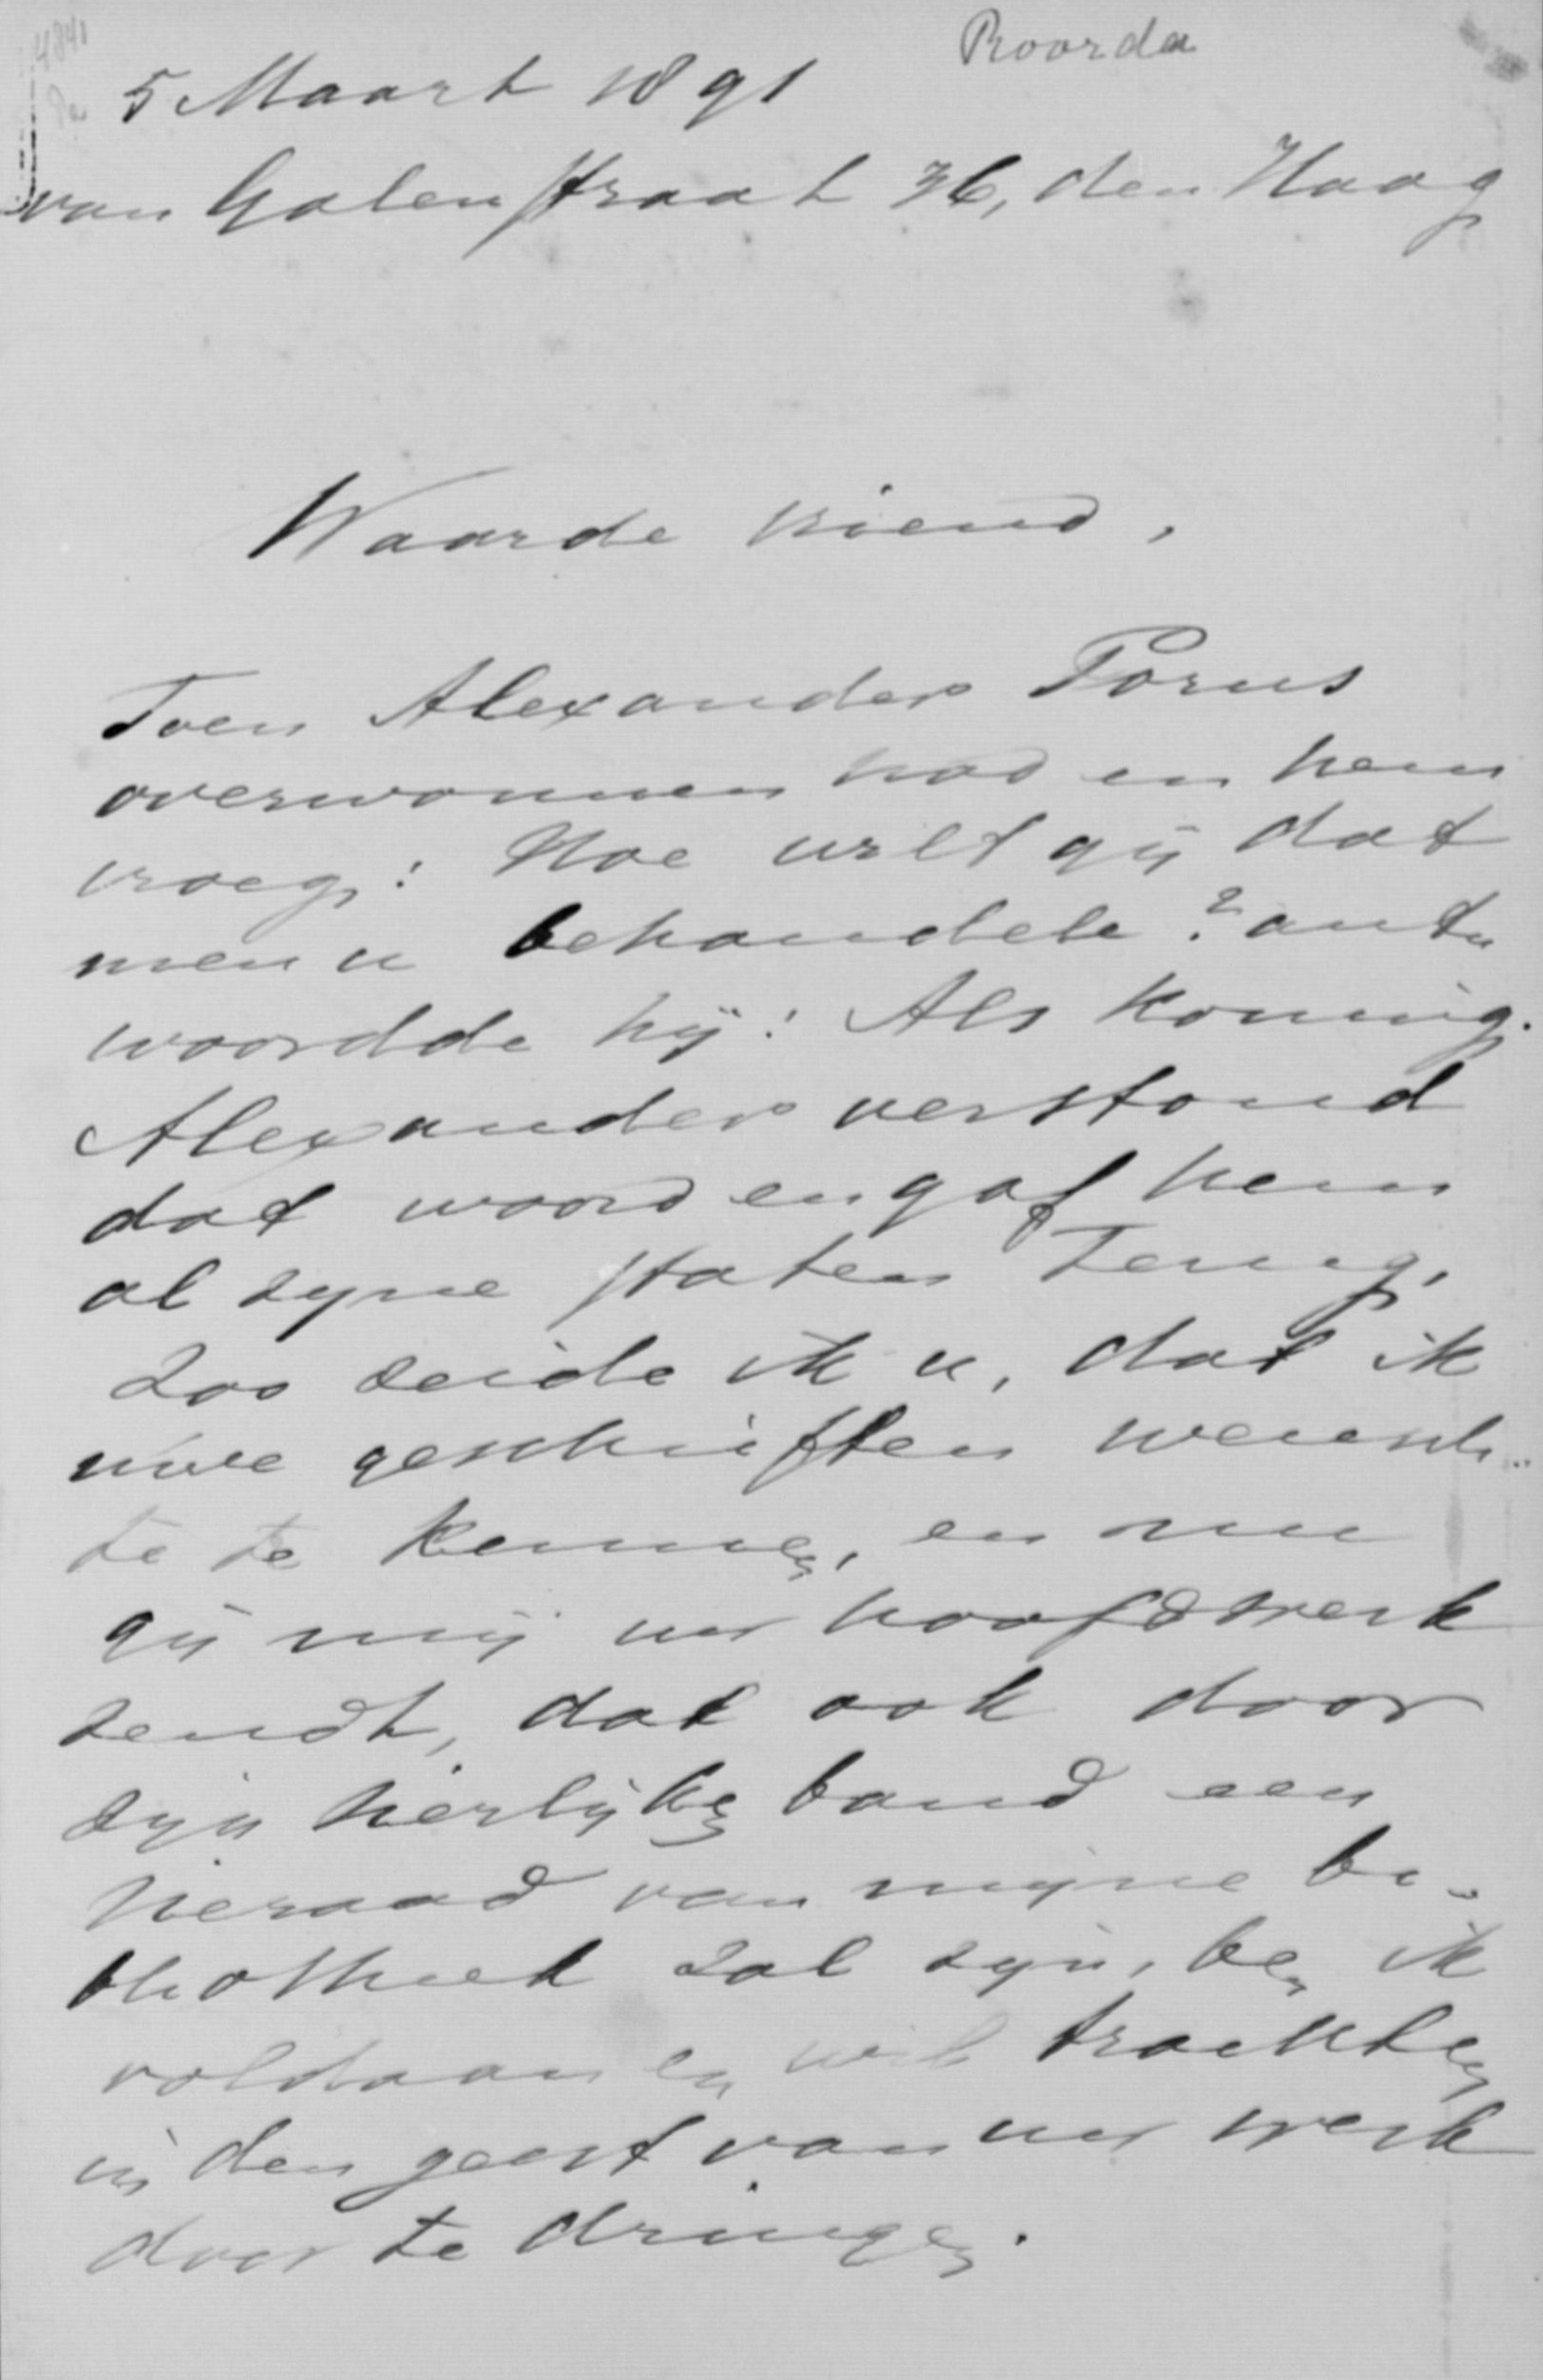 Roorda
5 Maart 1891
van Galenstraat 36, den Haag
Waarde vriend,
Toen Alexander Porus
overwonnen had en hem
vroeg: Hoe wilt gij dat
men u behandele? ant-
woordde hij: Als koning.
Alexander verstond
dat woord en gaf hem
al zijne staten terug.
Zoo zeide ik u, dat ik
uwe geschriften wensch-
te te kennen, en nu
gij mij uw hoofdwerk
zendt, dat ook door
zijn heerlijken band een
sieraad van mijne bi-
bliotheek zal zijn, ben ik
voldaan en wil trachten
in den geest van uw werk
door te dringen.